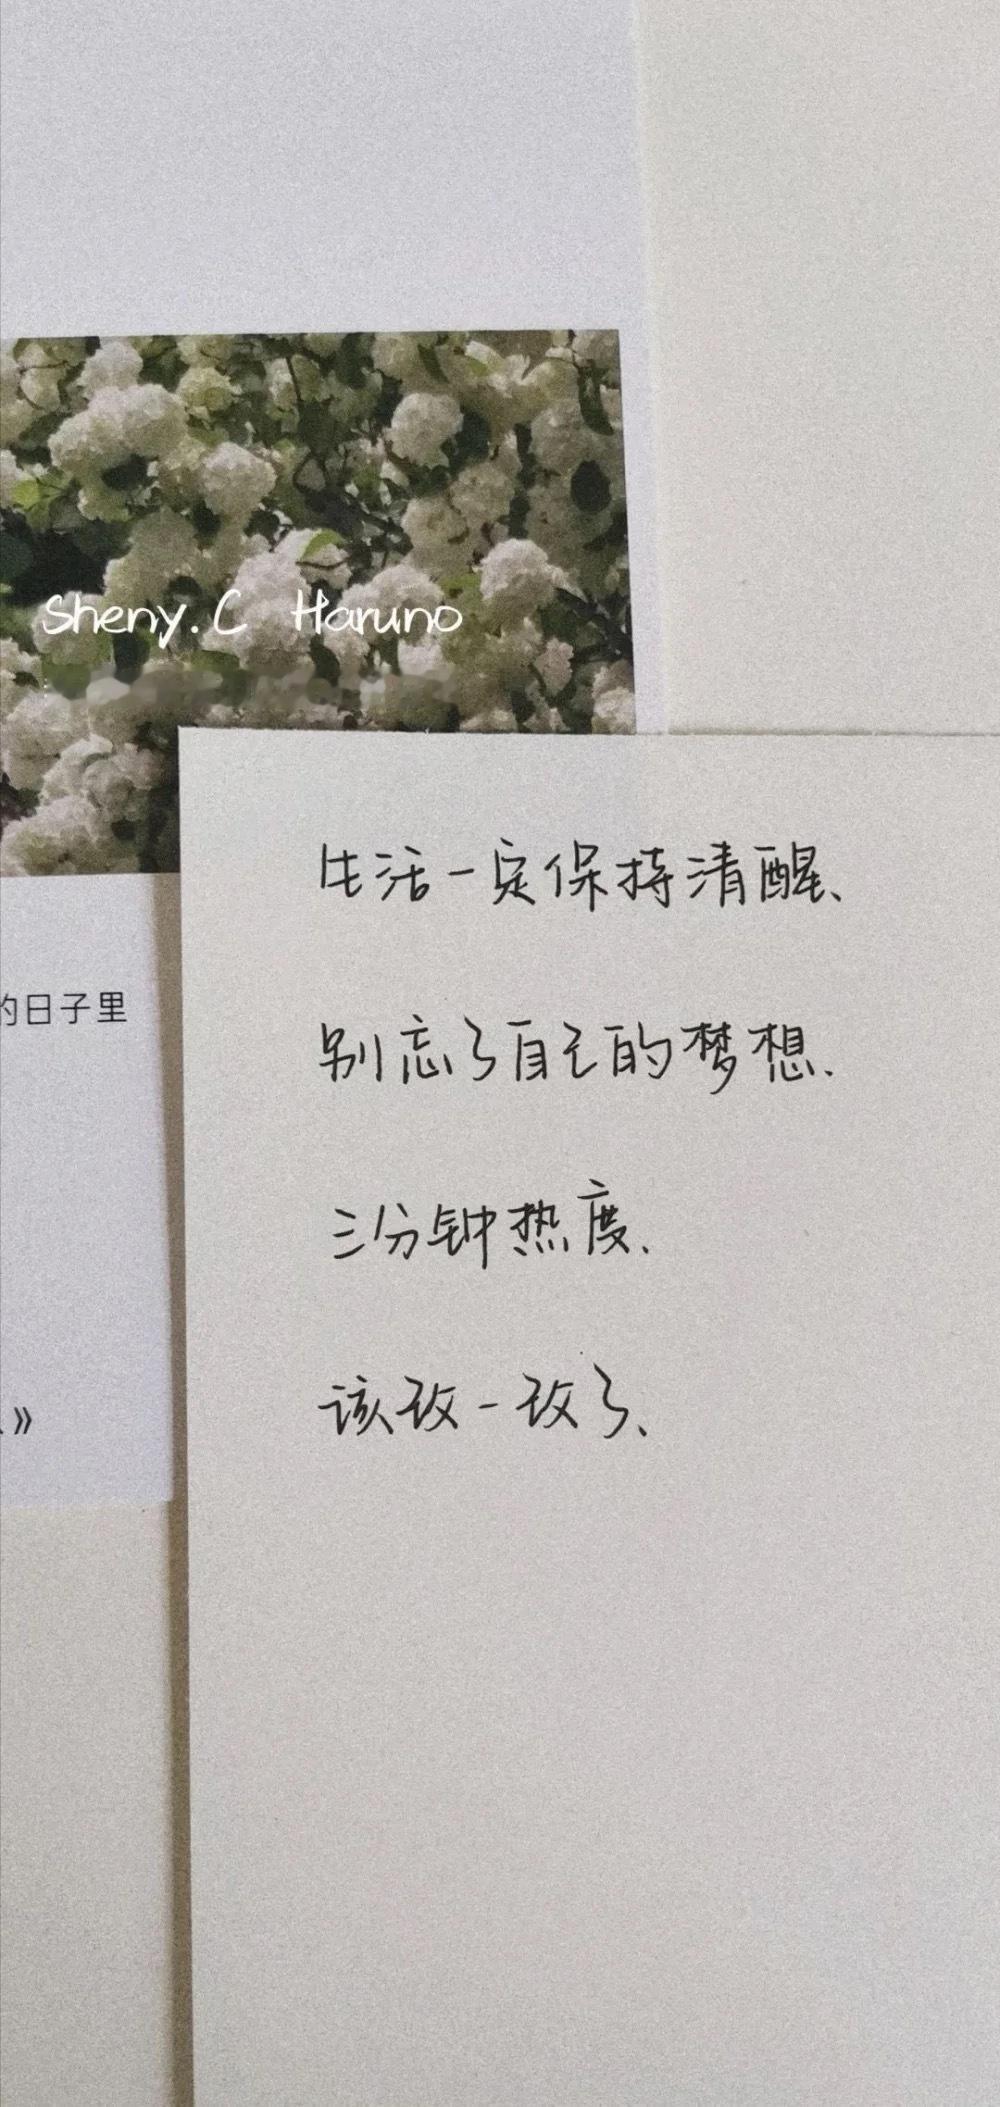 Sheny.C Haruno
生活一定保持清醒、
别忘了自己的梦想.
的日子里
三分钟热度.
该改一改了、
》